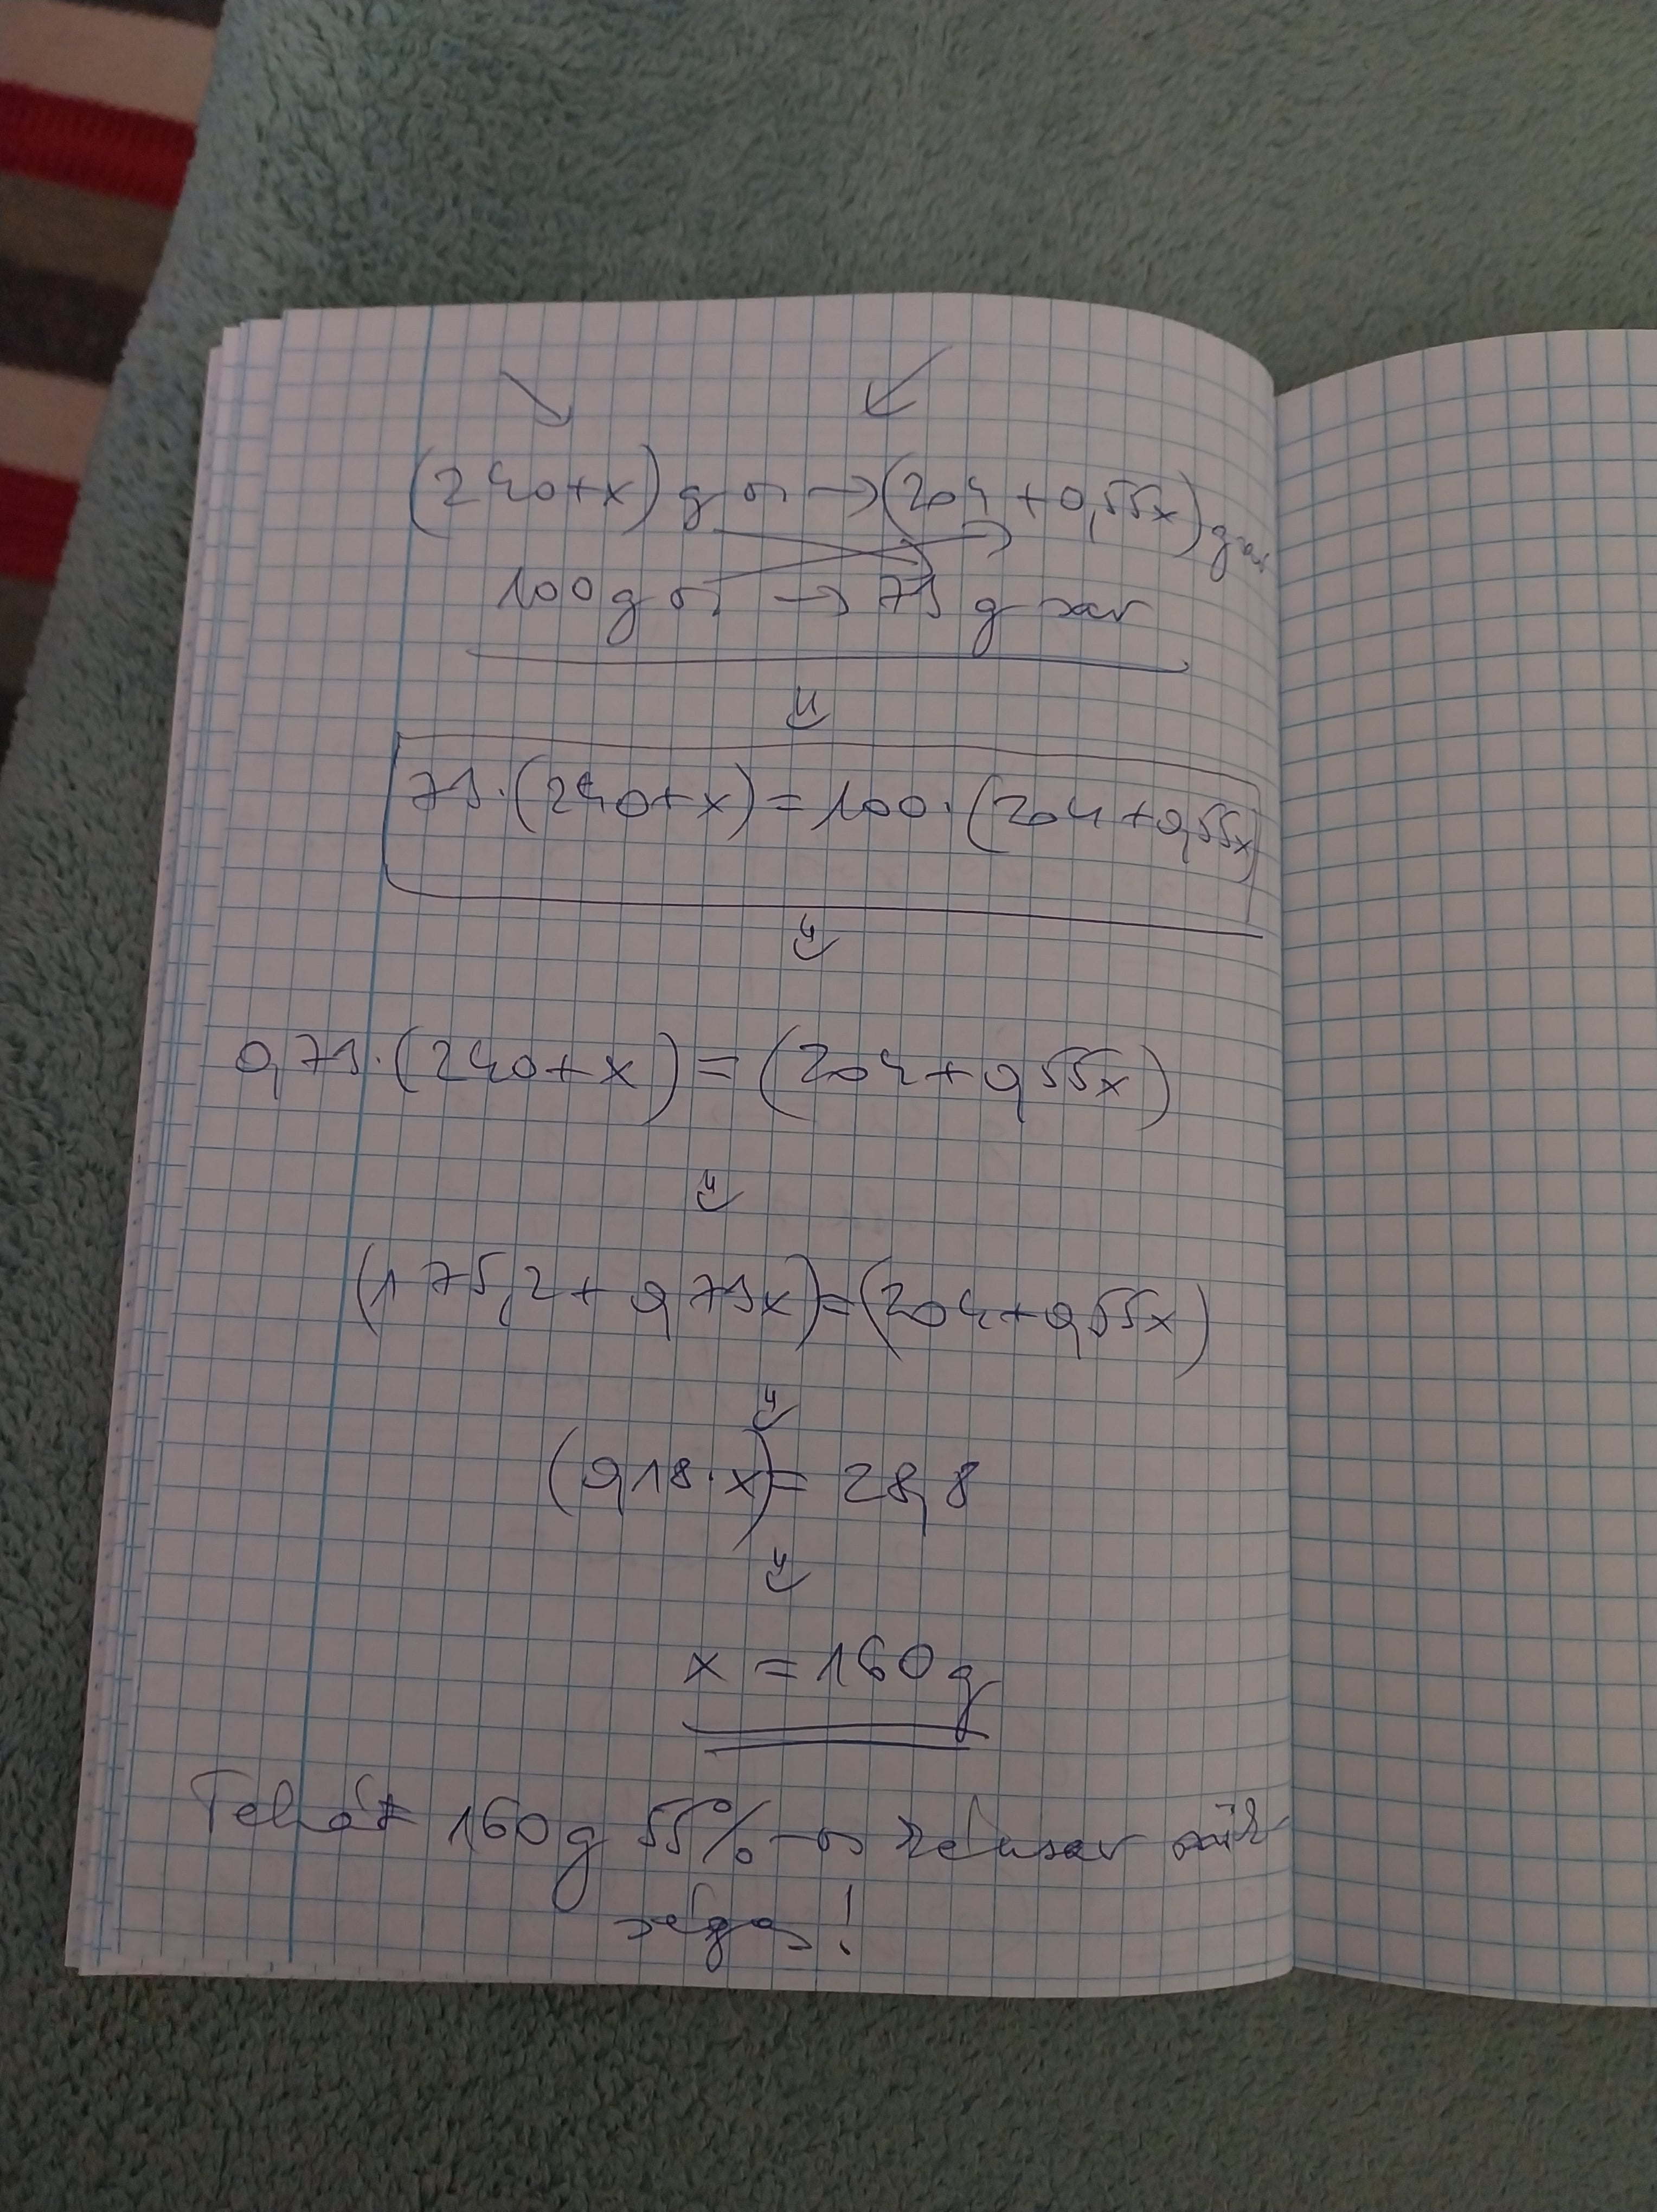 (240+x) g o. → (204 + 0,55x) g sav
100 g o. → 73 g sav
73·(240+x) = 100·(204+0,55x)
0,73·(240+x) = (204+0,55x)
(175,2 + 0,73x) = (204+0,55x)
(0,18·x) = 28,8
x = 160 g
Tehát 160 g 55%-os kénsav szük-
séges!